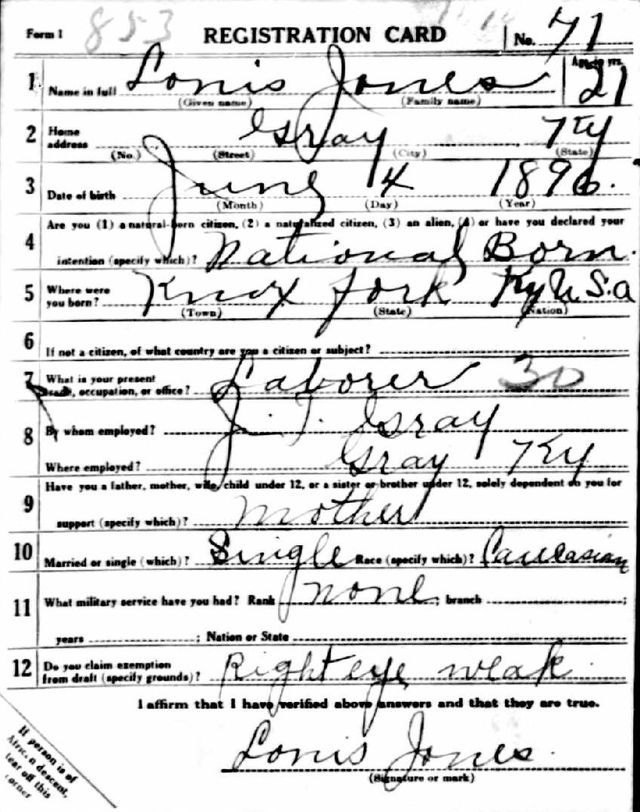 Form 1 853 REGISTRATION CARD No. 71
1 Name in full Lonis Jones Age in yrs. 21
(Given name) (Family name)
2 Home address Gray Ky
(No.) (Street) (City) (State)
3 Date of birth June 4 1896
(Month) (Day) (Year)
4 Are you (1) a natural-born citizen, (2) a naturalized citizen, (3) an alien, (4) or have you declared your
intention (specify which)? National Born
5 Where were you born? Knox fork Ky U.S.a
(Town) (State) (Nation)
6 If not a citizen, of what country are you a citizen or subject?
7 What is your present trade, occupation, or office? Laborer 30
8 By whom employed? J. T. Gray
Where employed? Gray Ky
9 Have you a father, mother, wife, child under 12, or a sister or brother under 12, solely dependent on you for
support (specify which)? mother
10 Married or single (which)? Single Race (specify which)? Caucasian
11 What military service have you had? Rank none; branch ;
years ; Nation or State
12 Do you claim exemption from draft (specify grounds)? Right eye weak
I affirm that I have verified above answers and that they are true.
Lonis Jones.
(Signature or mark)
If person is of
African descent,
tear off this
corner